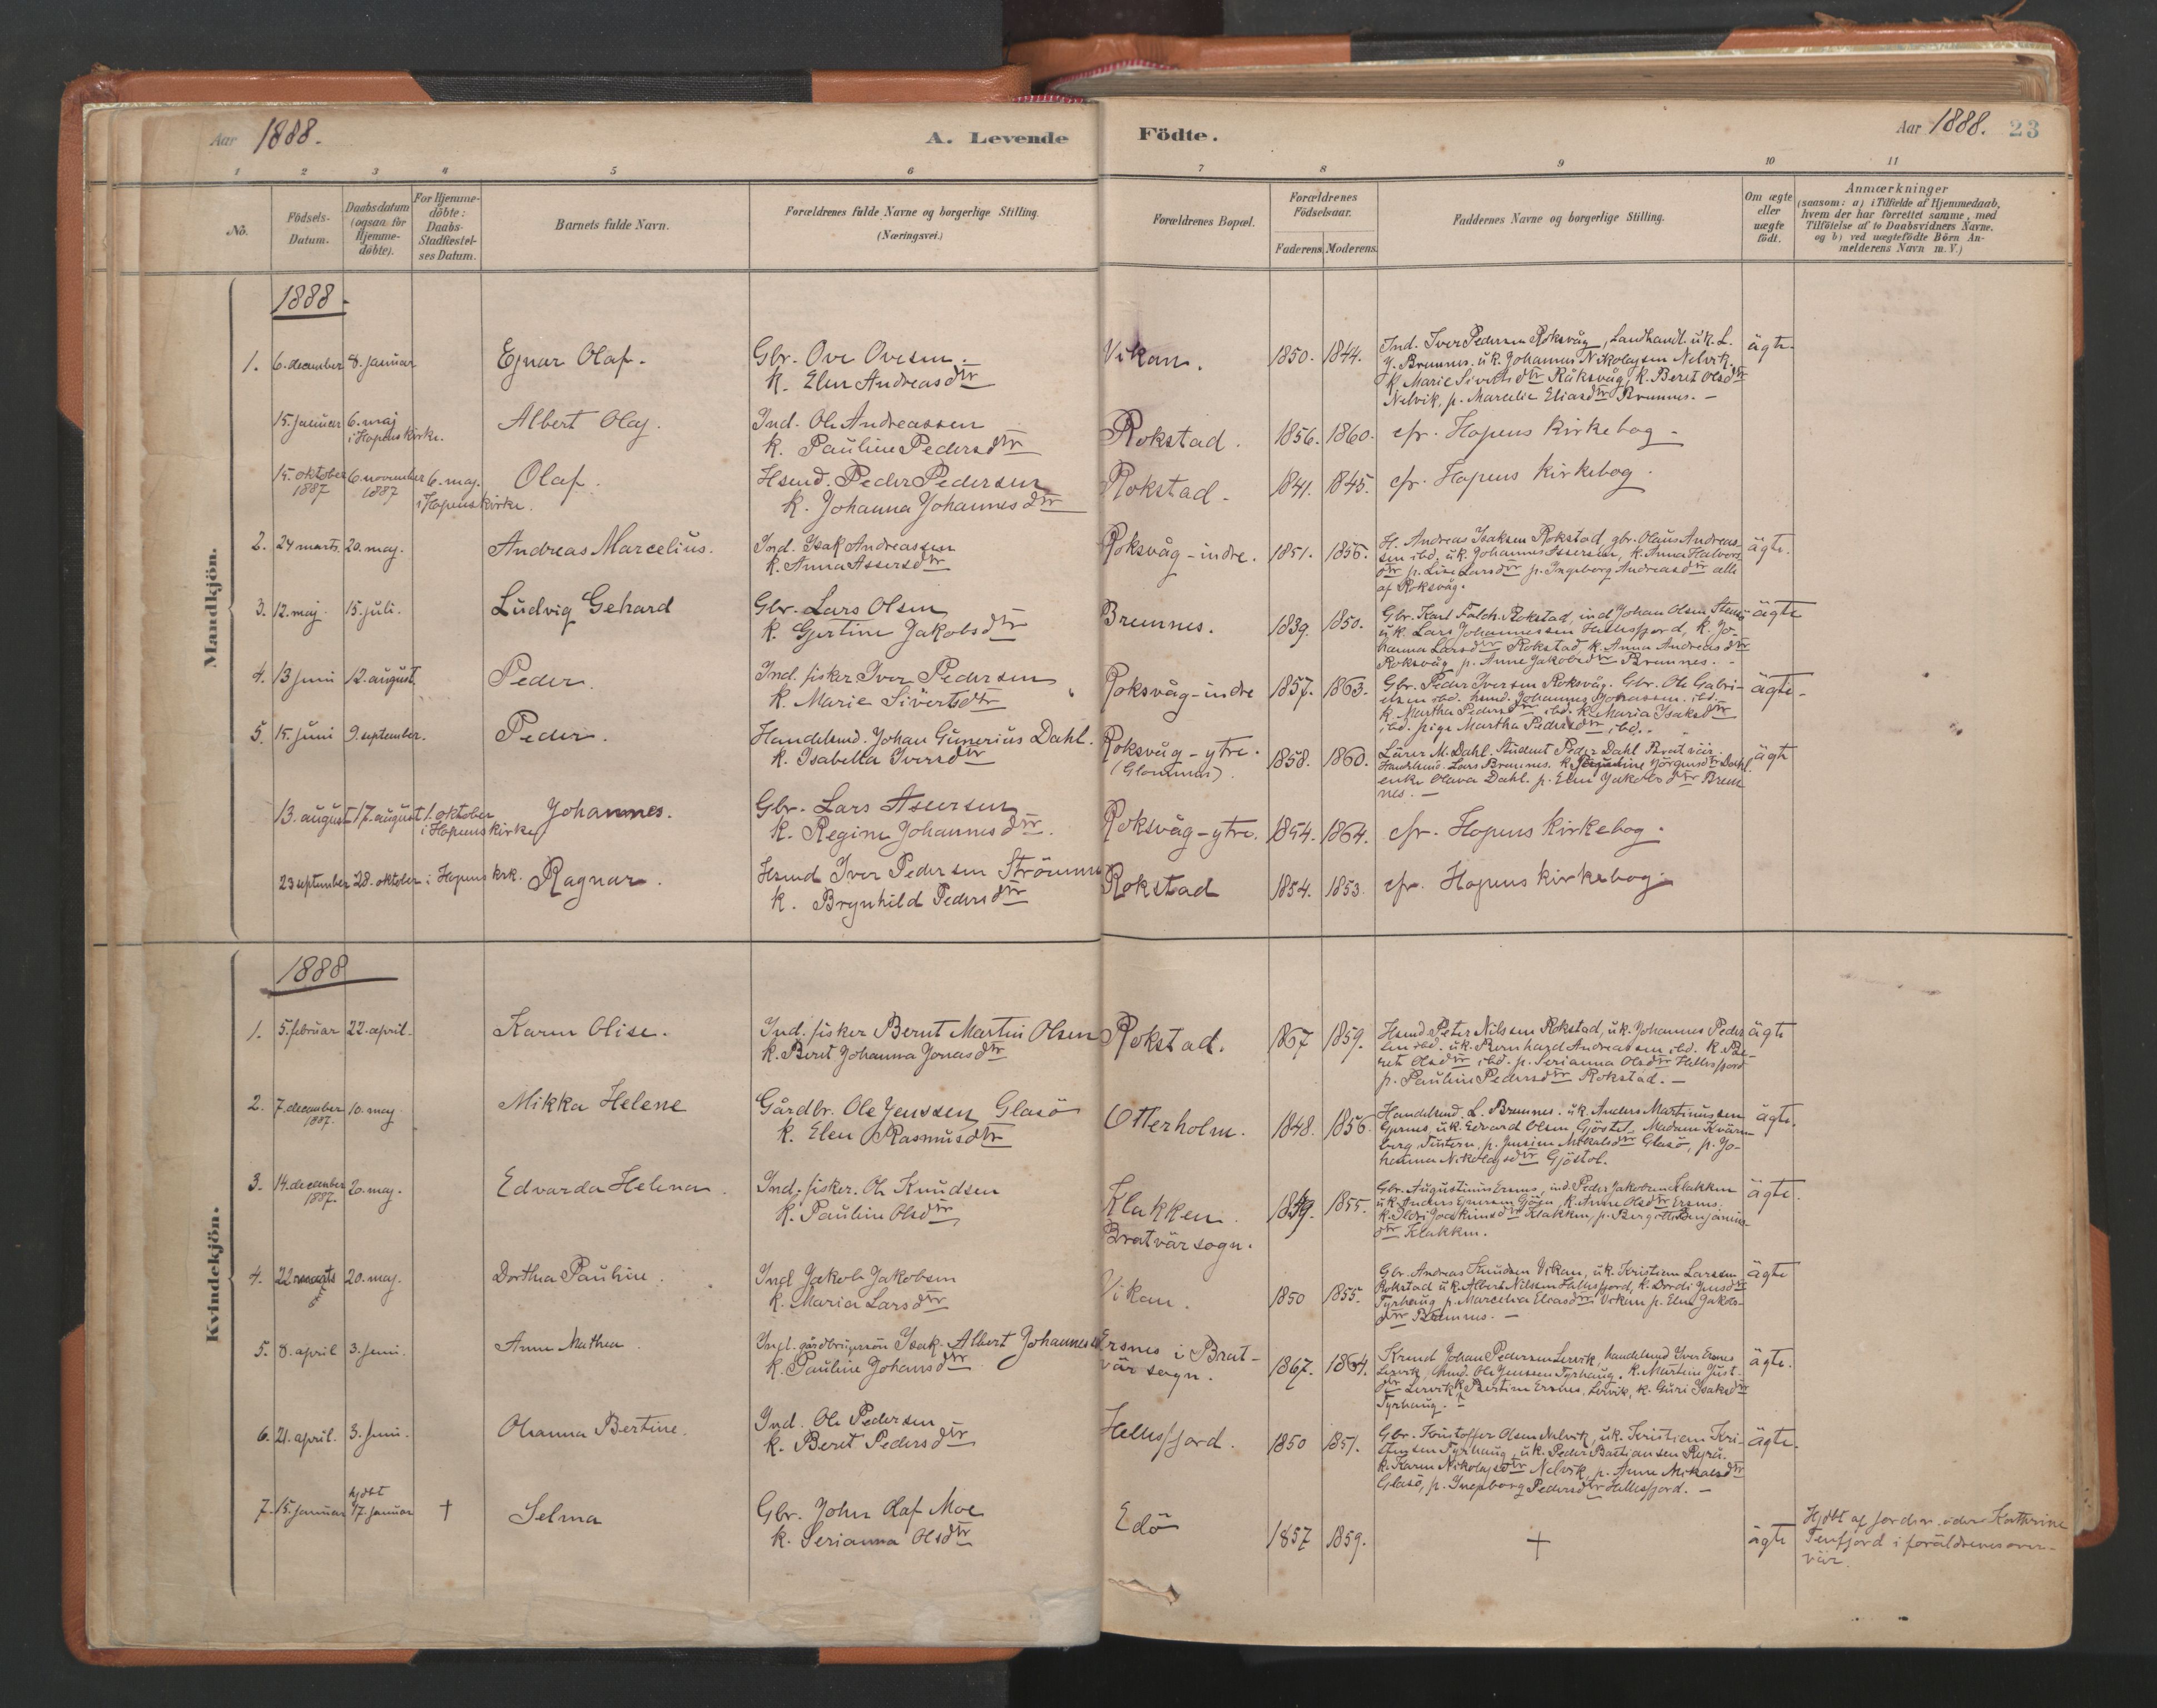 Aar 1888.
A. Levende
Födte.
Aar 1888. 23
1 2 3 4 5 6 7 8 9 10 11
No.
Födsels-
Datum.
Daabsdatum
(ogsaa for
Hjemme-
döbte).
For Hjemme-
döbte:
Daabs-
Stadfæstel-
ses Datum.
Barnets fulde Navn.
Forældrenes fulde Navne og borgerlige Stilling.
(Næringsvei.)
Forældrenes Bopæl.
Forældrenes
Födselsaar.
Faderens. Moderens.
Faddernes Navne og borgerlige Stilling.
Om ægte
eller
uægte
födt.
Anmærkninger
(saasom: a) i Tilfælde af Hjemmedaab,
hvem der har forrettet samme, med
Tilföielse af to Daabsvidners Navne.
og b) ved uægtefödte Börn An-
melderens Navn m. V.)
Mandkjön.
1888.
1. 6. december 8. januar
Ejnar Olaf.
Gbr. Ove Ovesen.
k. Elen Andreasdtr
Vikan.
1850. 1844.
Ind. Iver Pedersen Roksvåg, Landhandl. uk. L.
J. Bremnes. uk. Johannes Nikolaysen Nelvik.
k. Marie Sivertsdtr Råksvåg, k. Beret Olsdtr
Nelvik, p. Marcelie Eliasdtr Bremnes. —
ägte.
15. januar 6. maj
i Hopens kirke.
Albert Olaj.
Ind. Ole Andreassen
k. Pauline Pedersdtr
Rokstad.
1856. 1860.
cfr. Hopens kirkebog —
15. oktober 6. november 6. maj.
1887 1887 i Hopens kirke.
Olaf.
Hsmd. Peder Pedersen
k. Johanna Johannesdtr
Rokstad.
1841. 1845.
cfr. Hopens kirkebog.
2. 24 marts 20. maj.
Andreas Marcelius.
Ind. Isak Andreassen
k. Anna Assersdtr
Roksvåg - indre.
1851. 1856.
H. Andreas Isaksen Rokstad, gbr. Olaus Andreas-
sen ibd. uk. Johannes Assersen, k. Anna Halvors
dtr p. Lise Larsdtr p. Ingeborg Andreasdtr alle
af Roksvåg.
ägte.
3. 12. maj. 15. juli.
Ludvig Gehard
Gbr. Lars Olsen
k. Gjertine Jakobsdtr
Bremnes.
1839. 1850.
Gbr. Karl Falch. Rokstad, ind Johan Olsen
uk. Lars Johannessen Hellesfjord, k. Jo-
hanna Larsdtr Rokstad, k. Anna Andreasdtr
Roksvåg p. Anne Jakobsdtr Bremnes.
ägte
4. 13 juni 12. august.
Peder.
Ind. fisker Iver Pedersen
k. Marie Sivertsdtr
Roksvåg - indre
1857. 1863.
Gbr. Peder Iversen Roksvåg. Gbr. Ole Gabri-
elsen ibd. hsmd. Johannes Johansson. ibd.
k. Martha Pedersdtr ibd. k. Maria Isaksdtr
ibd. pige Martha Pedersdtr ibd.
ägte
5. 15. juni 9. september.
Peder.
Handelsmd. Johan Gunerius Dahl.
k. Isabella Iversdtr
Roksvåg - ytre.
(Glommen).
1858. 1860.
Lärer M. Dahl. Student Peder Dahl Bratvär.
Handelsmd. Lars Bremnes. k. Jörgensdtr Dahl.
enke Olava Dahl. p. Elen Jakobsdtr Brem
nes. —
ägte
13. august 17. august 1. oktober
i Hopens kirke
Johannes.
Gbr. Lars Assersen
k. Regine Johannesdtr.
Roksvåg - ytre.
1854. 1864.
cfr. Hopens kirkebog.
23 september 28. oktober i Hopens krk.
Ragnar.
Hsmd Iver Pedersen Strömme
k. Brynhild Pedersdtr
Rokstad
1854. 1853.
cfr. Hopens kirkebog.
Kvindekjön.
1888
1. 5. februar 22. april.
Karen Olise.
Ind. fisker Bernt Martin Olsen
k. Beret Johanna Jonasdtr
Rokstad.
1867 1859.
Hsmd Peter Nilssen Rokstad, uk. Johannes Peder
sen ibd. uk. Bernhard Andreassen ibd. k. Be-
ret Olsdtr ibd. p. Serianna Olsdtr Hellesfjord
p. Pauline Pedersdtr Rokstad. —
ägte
2. 7. december 10. maj
1887.
Mikka Helene
Gårdbr. Ole Jenssen Glasö
k. Elen Rasmusdtr
Otterholm.
1848. 1856.
Handelsmd. L. Bremnes. uk. Anders Martinussen
uk. Edvard Olsen Gjöstöl. Madam Kvärn-
berg p. Jensine Mikalsdtr Glasö, p. Jo-
hanna Nikolajsdtr Gjöstöl.
ägte.
3. 14. december 20. maj.
1887.
Edvarda Helena.
Ind. fisker. Ole Knudsen
k. Pauline Olsdtr
Klakken.
Bratvär sogn.
1849. 1855.
Gbr. Augustinus Ersnes, ind. Peder Jakobsen Klakken
uk. Anders k. Anne Olsdtr Ersnes.
k. Joakimsdtr Klakken, p. Bergitte Benjamins-
dtr Klakken.
ägte.
4. 22 marts 20. maj.
Dorthea Pauline.
Ind Jakob Jakobsen
k. Maria Larsdtr
Vikan.
1850 1855.
Gbr. Andreas Knudsen Vikan, uk. Kristian Larssen
Rokstad uk. Albert Nilssen Hellesfjord, k. Dordi Jensdtr
Tyrhaug, p. Marcelia Eliasdtr Vikan p. Elen Jakobs-
dtr Bremnes. —
ägte
5. 8. april 3. juni.
Anne Mathea
Ind. gårdbrugersön Isak Albert Johannesen
k. Pauline Johansdtr
Ersnes i Brat-
vär sogn.
1867. 1864.
Krmd Johan Pedersen Lervik, handelsmd Iver Ersnes
Lervik, Hsmd. Ole Jenssen Tyrhaug. k. Martine Just-
dtr Lervik k. Bertine Ersnes, Lervik, k. Guri Isaksdtr
Tyrhaug.
ägte.
6. 21. april. 3. juni.
Oleanna Bertine.
Ind. Ole Pedersen
k. Beret Pedersdtr
Hellesfjord.
1850 1851.
Gbr. Kristoffer Olsen Nelvik, uk. Kristian Kri-
stensen Tyrhaug, uk. Peder Bastiansen
k. Karen Nikolajsdtr Nelvik, p. Anne Mikalsdtr
Glasö, p. Ingeborg Pedersdtr Hellesfjord. —
ägte.
7. 15. januar hjdbt
17. januar †
Selma
Gbr. John Olaf Moe
k. Serianna Olsdtr
Edö
1857 1859.
†
ägte
Hjdbt af jordemoder Kathrine
Tenfjord i foräldrenes over-
vär.